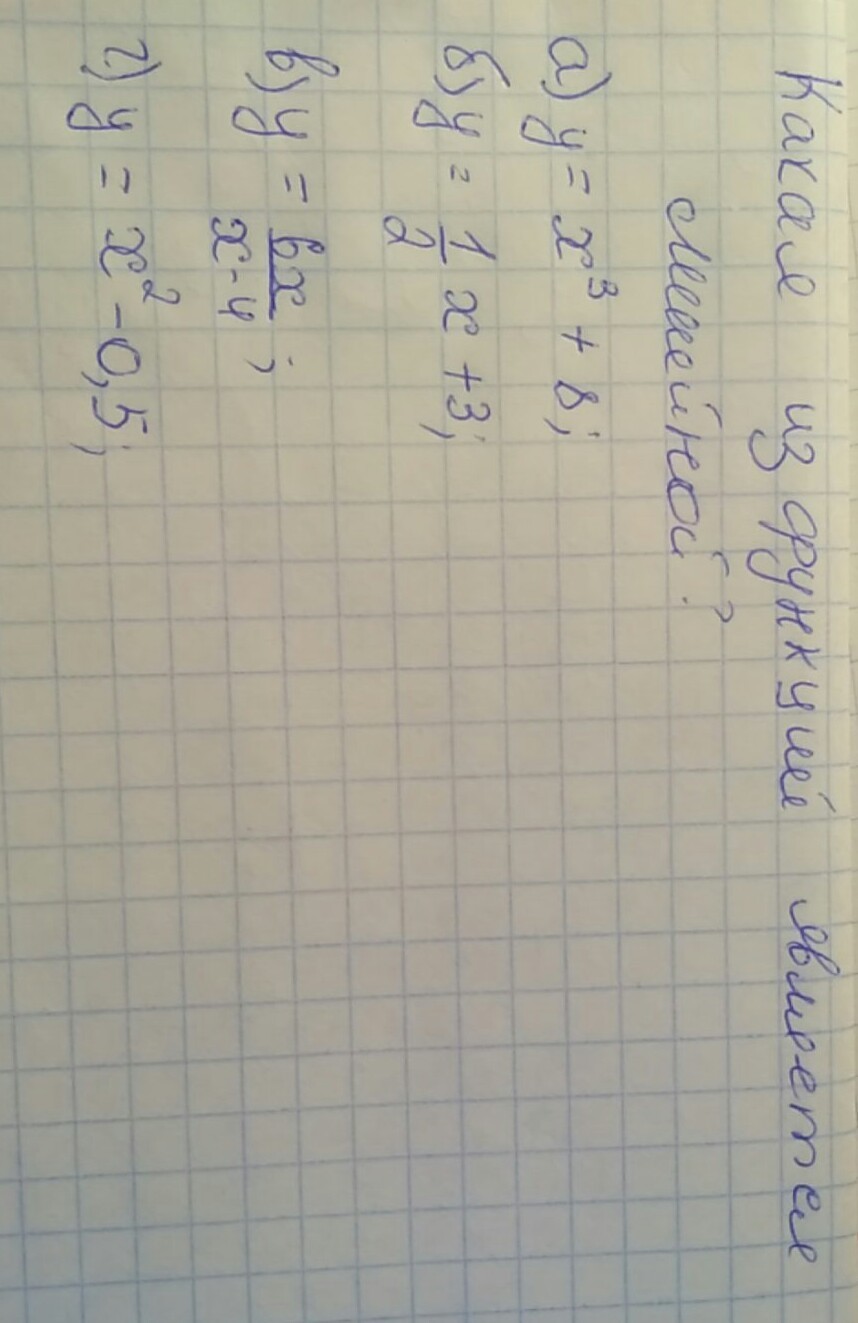 Какая из функций является
линейной?
а) y = x³ + 8;
б) y = 1/2 x + 3;
в) y = 6x/x-4;
г) y = x² - 0,5;